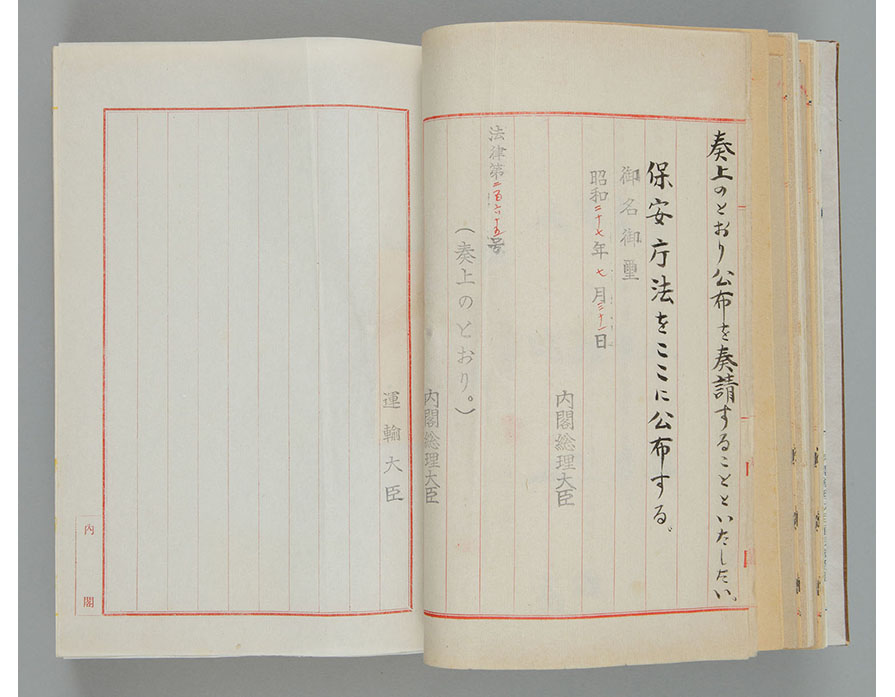 奏上のとおり公布を奏請することといたしたい。
保安庁法をここに公布する。
御名御璽
昭和二十七年七月三十一日
内閣総理大臣
法律第二百六十五号
（奏上のとおり。）
内閣総理大臣
運輸大臣
内閣